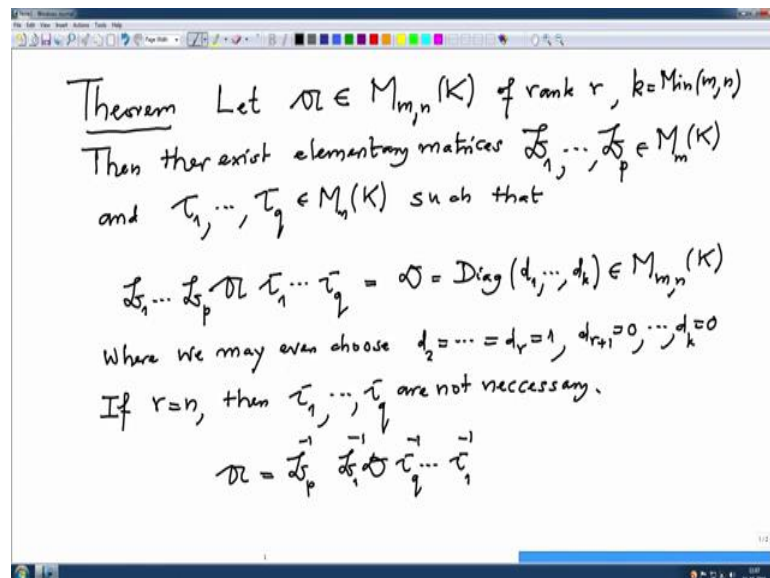 Note1 - Windows Journal
File Edit View Insert Actions Tools Help
Page Width
Theorem Let 𝔄 ∈ M_{m,n}(K) of rank r, k=Min(m,n)
Then ther exist elementary matrices 𝔏_1, ..., 𝔏_p ∈ M_m(K)
and τ_1, ..., τ_q ∈ M_n(K) such that
𝔏_1 ... 𝔏_p 𝔄 τ_1 ... τ_q = 𝔇 = Diag(d_1, ..., d_k) ∈ M_{m,n}(K)
Where we may even choose d_2 = ... = d_r = 1, d_{r+1} = 0, ..., d_k = 0
If r=n, then τ_1, ..., τ_q are not neccessary.
𝔄 = 𝔏_p^{-1} 𝔏_1^{-1} 𝔇 τ_q^{-1} ... τ_1^{-1}
1/2
1